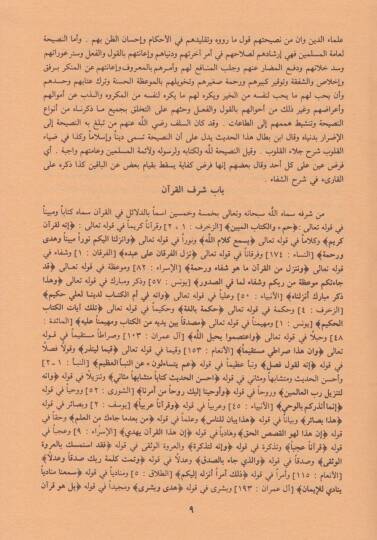 علماء الدين وان من نصيحتهم قبول ما رووه وتقليدهم في الأحكام وإحسان الظن بهم . وأما النصيحة
لعامة المسلمين فهي إرشادهم لصلاحهم في أمر آخرتهم ودنياهم وإعانتهم بالقول والفعل وستر عوراتهم
وسد خلاتهم ودفع المضار عنهم وجلب المنافع لهم وأمرهم بالمعروف وإعانتهم عن المنكر برفق
وإخلاص والشفقة وتوقير كبيرهم ورحمة صغيرهم وتخولهم بالموعظة الحسنة وترك عتابهم وحسدهم
وأن يحب لهم ما يحب لنفسه من الخير ويكره لهم ما يكره لنفسه من المكروه والذب عن أموالهم
وأعراضهم وغير ذلك من أحوالهم بالقول والفعل وحثهم على التخلق بجميع ما ذكرناه من أنواع
النصيحة وتنشيط هممهم إلى الطاعات . وقد كان السلف رضي الله عنهم من تبلغ به النصيحة إلى
الإضرار بدنياه وقال ابن بطال هذا الحديث يدل على أن النصيحة تسمى ديناً وإسلاماً وكذا في ضياء
القلوب شرح جلاء القلوب . وقيل النصيحة لله ولكتابه ولرسوله ولأئمة المسلمين وعامتهم واجبة . أي
فرض عين على كل أحد وقال بعضهم إنها فرض كفاية يسقط بقيام بعض عن الباقين كذا ذكره على
القارىء في شرح الشفاء .
باب شرف القرآن
من شرفه سماه الله سبحانه وتعالى بخمسة وخمسين اسماً بالدلائل في القرآن سماه كتاباً ومبيناً
في قوله تعالى : ﴿حم، والكتاب المبين﴾ [الزخرف : ١، ٢] وقرآناً كريماً في قوله تعالى : ﴿إنه لقرآن
كريم﴾ وكلاماً في قوله ﴿يسمع كلام الله﴾ ونوراً في قوله تعالى ﴿وأنزلنا اليكم نوراً مبيناً وهدى
ورحمة﴾ [النساء : ١٧٤] وفرقاناً في قوله تعالى ﴿نزل الفرقان على عبده﴾ [الفرقان : ١] وشفاء في
قوله تعالى ﴿وننزل من القرآن ما هو شفاء ورحمة﴾ [الإسراء : ٨٢] وموعظة في قوله تعالى ﴿قد
جاءتكم موعظة من ربكم وشفاء لما في الصدور﴾ [يونس : ٥٧] وذكر ومبارك في قوله تعالى ﴿وهذا
ذكر مبارك أنزلناه﴾ [الأنبياء : ٥٠] وعلياً في قوله تعالى ﴿وإنه في أم الكتاب لدينا لعلي حكيم﴾
[الزخرف : ٤] وحكمة في قوله تعالى ﴿حكمة بالغة﴾ وحكيماً في قوله تعالى ﴿تلك آيات الكتاب
الحكيم﴾ [يونس : ١] ومهيمناً في قوله تعالى ﴿مصدقاً بين يديه من الكتاب ومهيمناً عليه﴾ [المائدة :
٤٨] وحبلاً في قوله تعالى ﴿واعتصموا بحبل الله﴾ [آل عمران : ١٠٣] وصراطاً مستقيماً في قوله
تعالى ﴿وان هذا صراطي مستقيماً﴾ [الأنعام : ١٥٣] وقيما في قوله تعالى ﴿قيما لينذر﴾ وقولاً فصلاً
في قوله ﴿إنه لقول فصل﴾ ونبأ عظيماً في قوله ﴿عم يتساءلون، عن النبأ العظيم﴾ [النبأ : ١ ـ ٢]
وأحسن الحديث ومتشابهاً ومثاني في قوله ﴿أحسن الحديث كتاباً متشابهاً مثاني﴾ وتنزيلاً في قوله ﴿وإنه
لتنزيل رب العالمين﴾ وروحاً في قوله ﴿وأوحينا إليك روحاً من أمرنا﴾ [الشورى : ٥٢] ووحياً في قوله
﴿إنما أنذركم بالوحي﴾ [الأنبياء : ٤٥] وعربياً في قوله ﴿وقرآناً عربياً﴾ [يوسف : ٢] وبصائر في قوله
﴿هذا بصائر﴾ وبياناً في قوله ﴿هذا بيان للناس﴾ وعلماً في قوله ﴿من بعدما جاءك من العلم﴾ وحقا في
قوله ﴿إن هذا لهو القصص الحق﴾ وهادياً في قوله ﴿إن هذا القرآن يهدي﴾ [الإسراء : ٩] وعجباً في
قوله ﴿قرآناً عجباً﴾ وتذكرة في قوله ﴿وإنه لتذكرة﴾ والعروة الوثقى في قوله ﴿فقد استمسك بالعروة
الوثقى﴾ وصدقاً في قوله ﴿والذي جاء بالصدق﴾ وعدلاً في قوله ﴿وتمت كلمة ربك صدقاً وعدلاً﴾
[الأنعام : ١١٥] وأمراً في قوله ﴿ذلك أمر الله أنزله إليكم﴾ [الطلاق : ٥] ومنادياً في قوله ﴿سمعنا منادياً
ينادي للإيمان﴾ [آل عمران : ١٩٣] وبشرى في قوله ﴿هدى وبشرى﴾ ومجيداً في قوله ﴿بل هو قرآن
٩